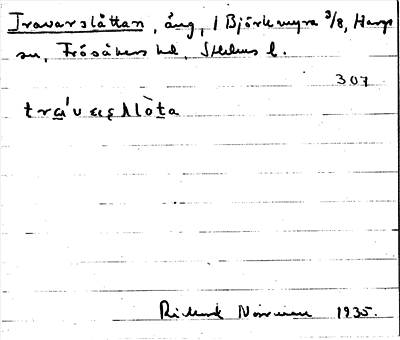 Travarslåttan, äng, 1 Björkmyra 3/8, Harg
sn, Frösåkers hd, Sthlms l.
307
Rickard Norrman 1935.